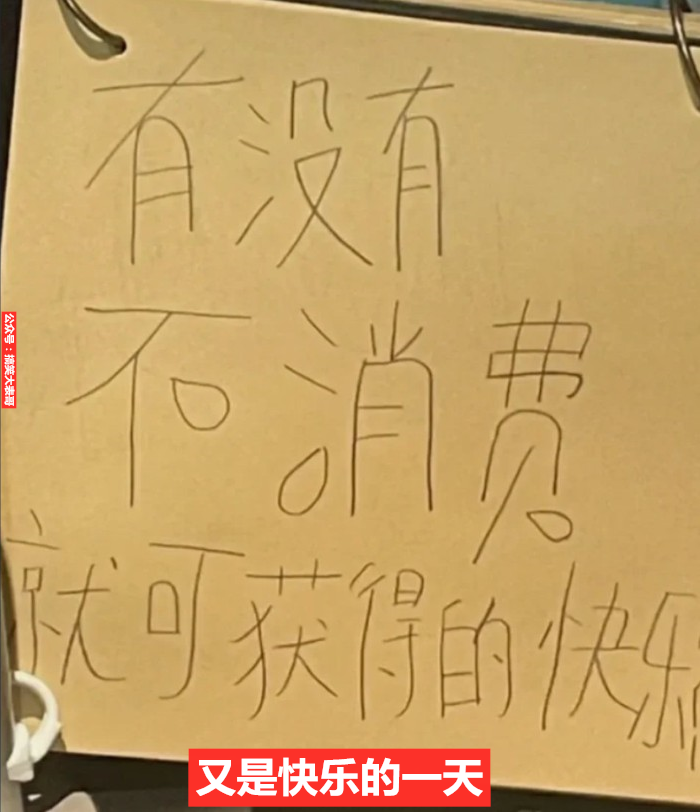 有没有
不消费
就可获得的快乐
公众号：搞笑大表哥
又是快乐的一天